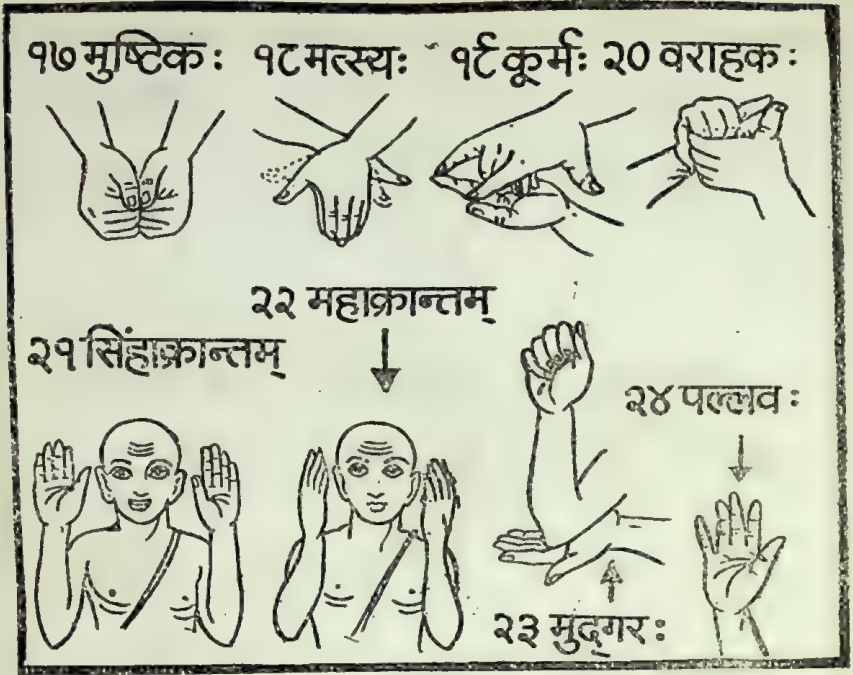 १७ मुष्टिकः १८ मत्स्यः १९ कूर्मः २० वराहकः
२२ महाक्रान्तम्
२१ सिंहाक्रान्तम्
२४ पल्लवः
२३ मुद्गरः